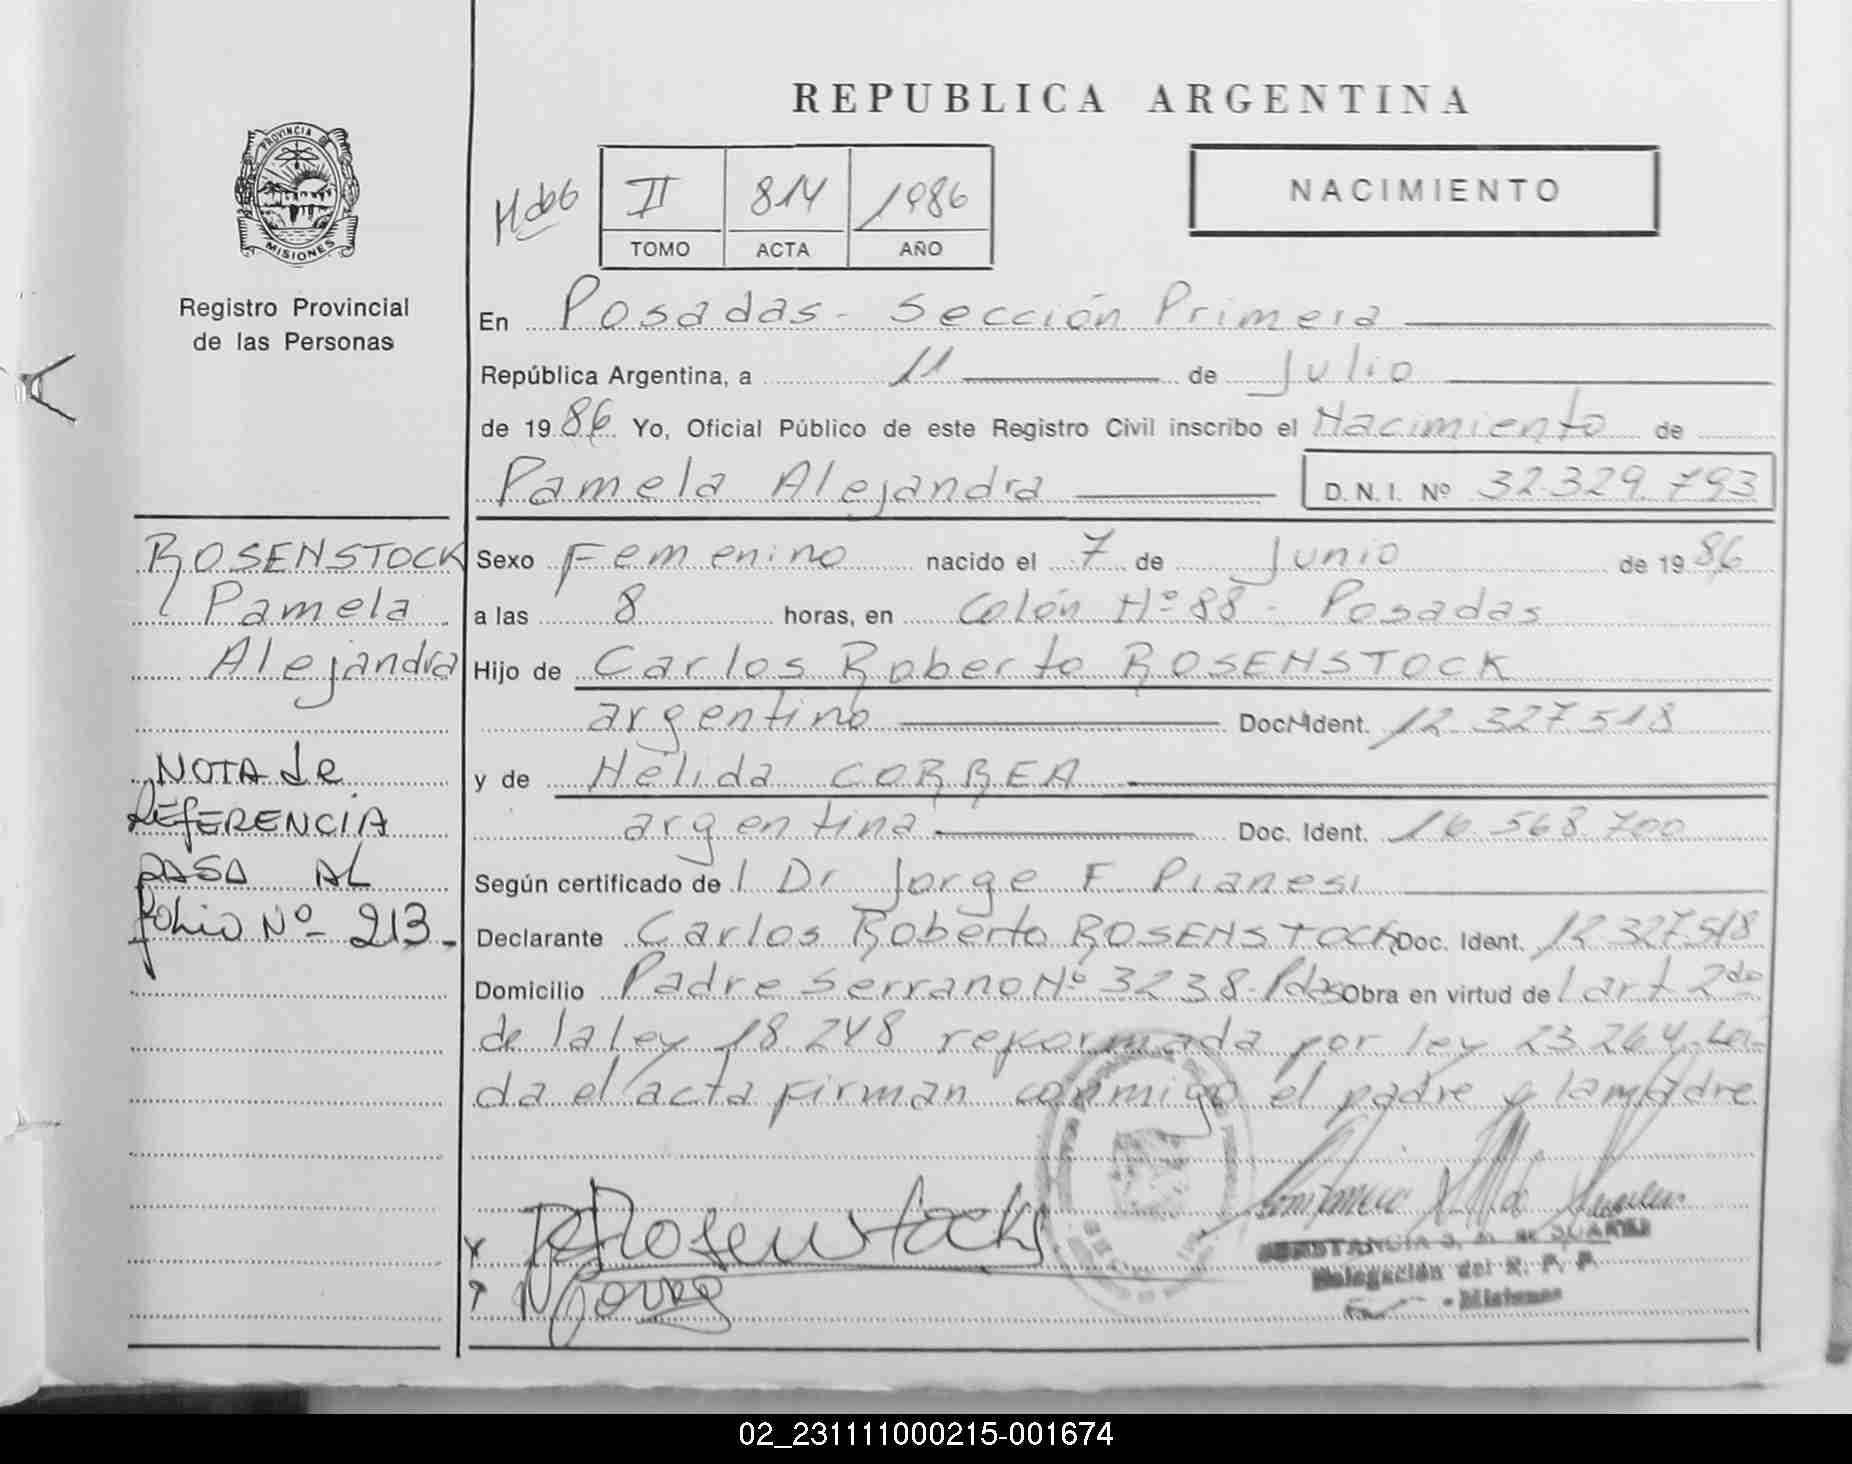 REPUBLICA ARGENTINA
PROVINCIA DE
MISIONES
Registro Provincial
de las Personas
II 814 1986
TOMO ACTA AÑO
NACIMIENTO
En Posadas - Sección Primera
República Argentina, a 11 de Julio
de 1986 Yo, Oficial Público de este Registro Civil inscribo el Nacimiento de
Pamela Alejandra D.N.I. Nº 32.329.793
ROSENSTOCK
Pamela
Alejandra
NOTA de
REFERENCIA
PASA AL
folio Nº 213.-
Sexo Femenino nacido el 7 de Junio de 1986
a las 8 horas, en Colón Nº 88 - Posadas
Hijo de Carlos Roberto ROSENSTOCK
argentino Doc. Ident. 12.327.518
y de Nélida CORREA
argentina Doc. Ident. 16.568.700
Según certificado de l Dr Jorge F Pianesi
Declarante Carlos Roberto ROSENSTOCK Doc. Ident. 12.327.518
Domicilio Padre Serrano Nº 3238-Pdas Obra en virtud de l art 2do
de la ley 18.248 reformada por ley 23.264. Leí-
da el acta firman conmigo el padre y la madre
Rosenstock
Delegación del R. P. P.
- Misiones
02_231111000215-001674